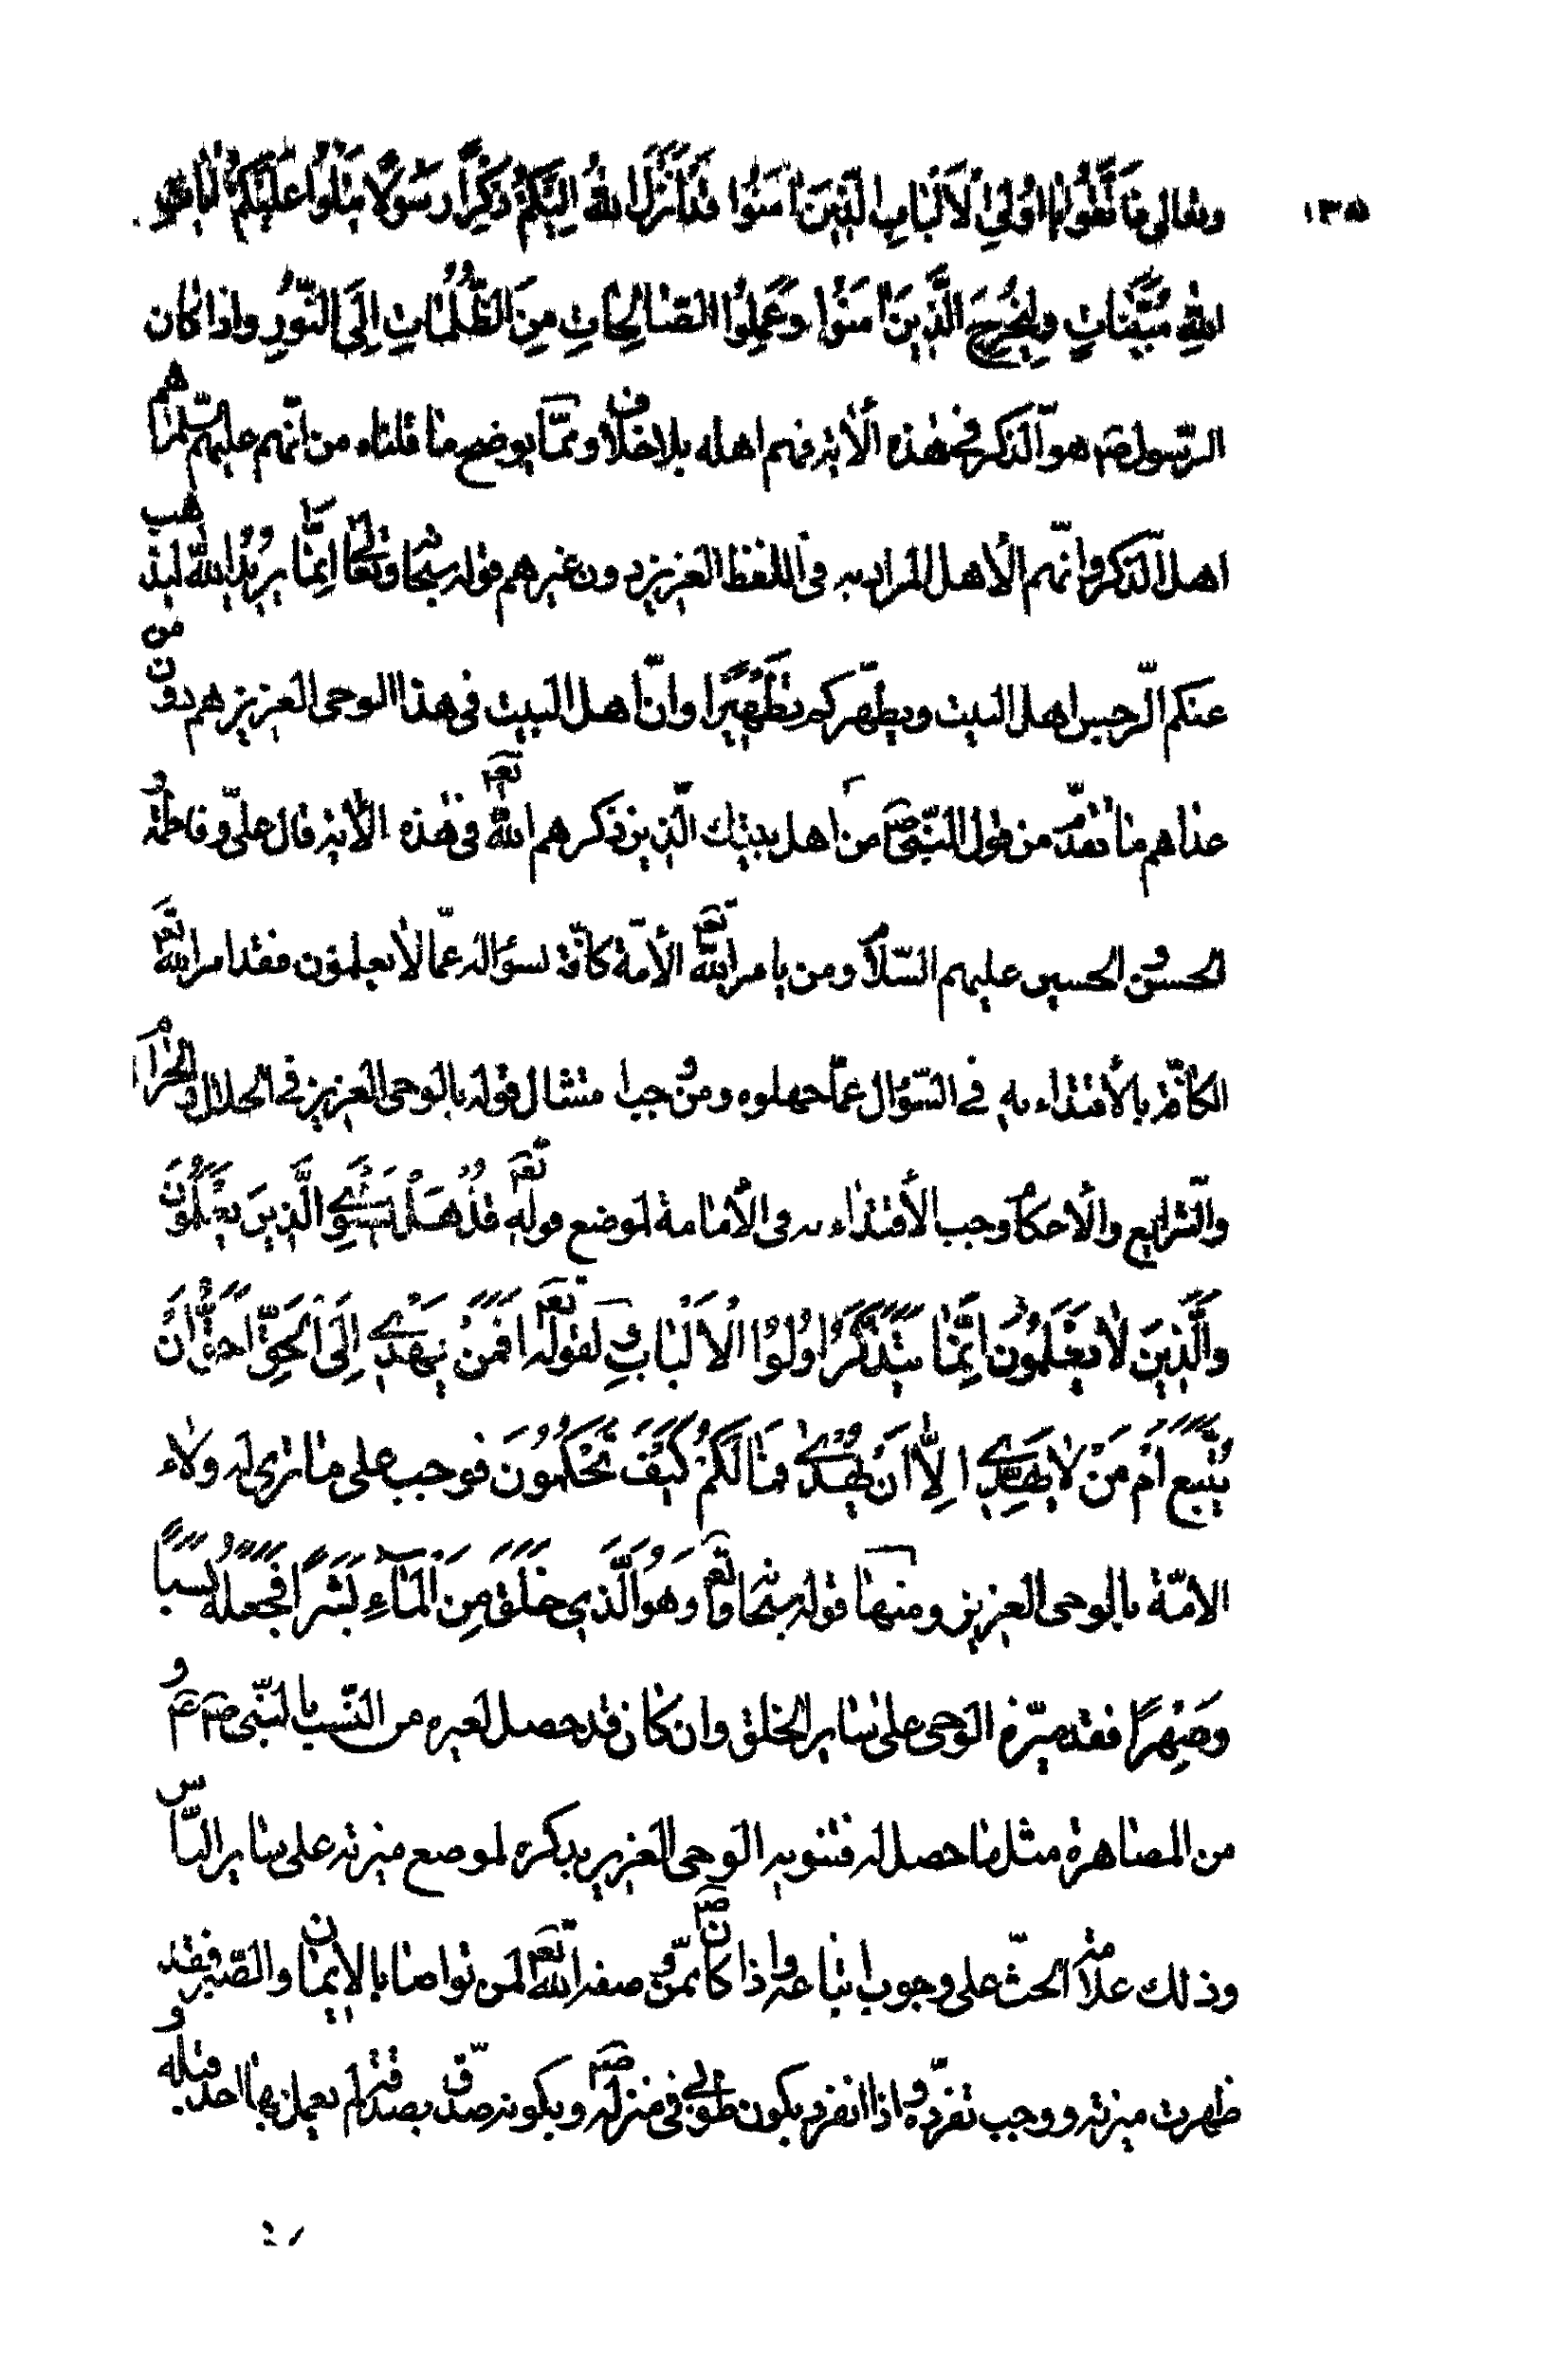 ١٣٥
وتعالى فَاتَّقُوا اللهَ يا اُولِي الْاَلْبابِ الَّذِينَ آمَنُوا قَدْ اَنْزَلَ اللهُ اِلَيْكُمْ ذِكْراً رَسُولاً يَتْلُوا عَلَيْكُمْ آياتِ
اللهِ مُبَيِّناتٍ لِيُخْرِجَ الَّذِينَ آمَنُوا وَعَمِلُوا الصّالِحاتِ مِنَ الظُّلُماتِ اِلَى النُّورِ واذا كان
الرّسول صم هو الذّكر فى هذه الأية فهم اهله بلا خلاف وممّا يوضح ما قلناه من انّهم عليهم السّلم هم
اهل الذّكر وانّهم الأهل المراد به فى اللفظ العزيز دون غيرهم قوله سبحا وتعالى اِنَّما يُرِيدُ اللهُ ليذهب
عنكم الرّجس اهل البيت ويطهّركم تَطْهِيرًا وانّ اهل البيت فى هذا الوحى العزيز هم دون من
عداهم ما تقدّم من قول النّبىّ صم من اهل بيتك الّذين ذكرهم الله تعم فى هذه الأية قال علىّ وفاطمة و
الحسن و الحسين عليهم السّلام ومن يامر الله تعم الأمّة كافّة بسؤاله عمّا لا يعلمون فقد امر الله تعم
الكافّة بالأقتداء به فى السّؤال عمّا جهلوه ومن وجب امتثال قوله بالوحى العزيز فى الحلال والحرام
والشّرايع والأحكام وجب الأقتداء به فى الأمامة لموضع قوله تعم قُلْ هَلْ يَسْتَوِي الَّذِينَ يَعْلَمُونَ
وَالَّذِينَ لا يَعْلَمُونَ اِنَّما يَتَذَكَّرُ اُولُوا الْاَلْبابِ و لقوله تعم اَفَمَنْ يَهْدِي اِلَى الْحَقِّ اَحَقُّ اَنْ
يُتَّبَعَ اَمْ مَنْ لا يَهِدِّي اِلاّ اَنْ يُهْدى فَما لَكُمْ كَيْفَ تَحْكُمُونَ فوجب على ما ترى له ولاء
الامّة بالوحى العزيز ومنها قوله سبحا وتعم وَهُوَ الَّذِي خَلَقَ مِنَ الْماءِ بَشَراً فَجَعَلَهُ نَسَباً
وَصِهْرًا فقد ميّزه الوحى على ساير الخلق وان كان قد حصل لغيره من النّسب بالنّبى صم و
من المصاهرة مثل ما حصل له فتنويه الوحى العزيز بذكره لموضع ميزته على ساير النّاس
وذلك علامة الحثّ على وجوب اتباعه و اذا كان صم ممّن و صفه الله تعم لمن تواصا بالايمان والصّبر فقد
ظهرت ميزته ووجب تفرّده و اذا انفرد بكون طوبى فى منزله صم وبكونه تصدّق بصدقة لم يعمل بها احد قبله و